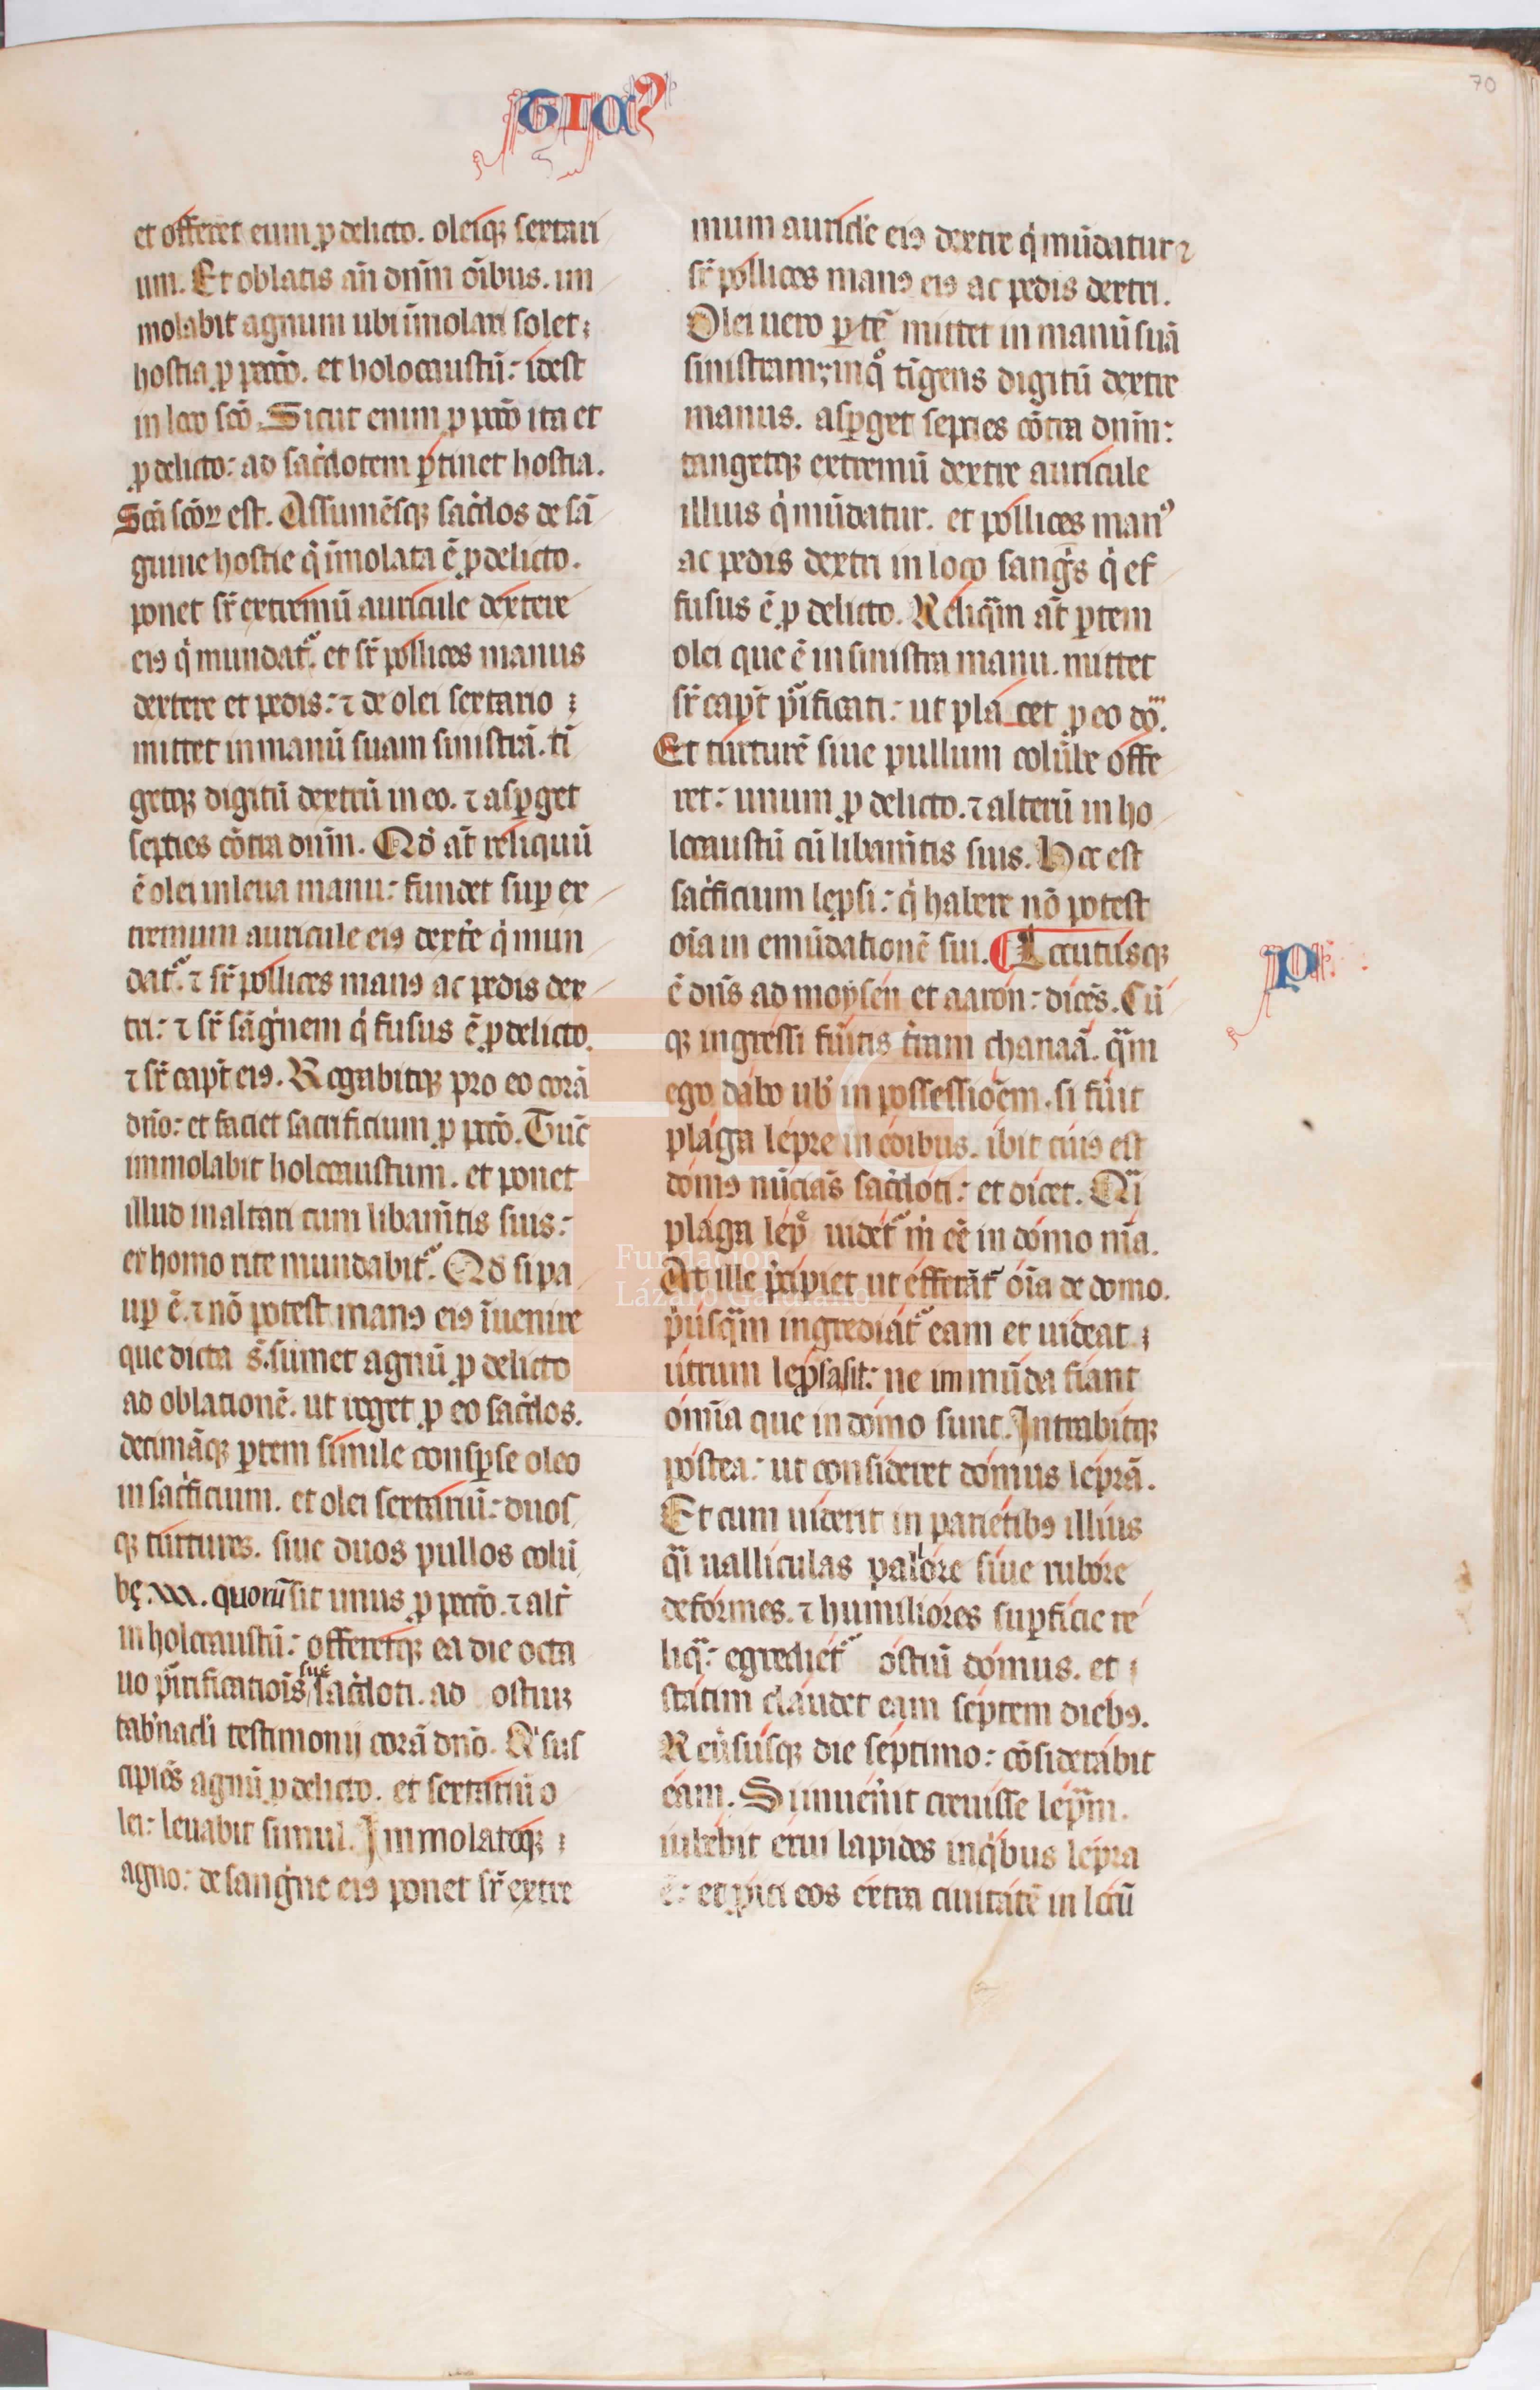 GIC9
70
et offeret eum ꝓ delicto. oleiqꝫ sextari
um. Et oblatis añ dnm̄ oĩbus. im
molabit agnum ubi ĩmolari solet;
hostia ꝓ pccō. et holocaustū: idest
in loco scō. Sicut enim ꝓ pccō ita et
ꝓ delicto: ad sac̓dotem ꝑtinet hostia.
Scā scōꝝ est. Assumēsqꝫ sac̓dos de sã
guine hostie q̓ ĩmolata ē ꝓ delicto.
ponet sr̄ extremū auricule dextere
eiꝯ q̓ mundat᷑. et sr̄ pollices manus
dextere et pedis: ⁊ de olei sextario;
mittet in manū suam sinistrã. tĩ
getqꝫ digitū dextrū in eo. ⁊ asꝑget
septies cōtra dnm̄. Qd̓ at̄ reliquū
ē olei in leua manu: fundet suꝑ ex
tremum auricule eiꝯ dext̓e q̓ mun
dat᷑. ⁊ sr̄ pollices manꝯ ac pedis dex
tri: ⁊ sr̄ sãg̓nem q̓ fusus ē ꝓ delicto.
⁊ sr̄ cap̄t eiꝯ. Rogabitqꝫ pro eo corã
dño: et faciet sacrificium ꝓ pccō. Tūc
immolabit holocaustum. et ponet
illud in altari cum libam̄tis suis:
et homo rite mundabit᷑. Qd̓ si pa
uꝑ ē. ⁊ nō potest manꝯ eiꝯ ĩuenire
que dicta s̄. sumet agnū ꝓ delicto
ad oblationē. ut roget ꝓ eo sac̓dos.
decimãqꝫ ꝑtem simile consꝑse oleo
in sac̓ficium. et olei sextariū: duos
qꝫ turtures. siue duos pullos colū
bę. xxx. quorū sit unus ꝓ pccō. ⁊ alt̓
in holocaustū: offeretqꝫ ea die octa
uo pu᷑ificatiōis sue sac̓doti. ad ostiuꝫ
tab̓nac̓li testimonij corã dnō. Q̓ sus
cipiēs agnū ꝓ delicto. et sextariū o
lei: leuabit simul. Immolatoqꝫ;
agno: de sang̓ne eiꝯ ponet sr̄ extre
mum auric̓le eiꝯ dextre q̓ mūdatur ⁊
sr̄ pollices manꝯ eiꝯ ac pedis dextri.
Olei uero ꝑtē mittet in manū suã
sinistram; inq̊ tĩgens digitū dextre
manus. asꝑget septies cōtra dnm̄:
tangetqꝫ extremū dextre auricule
illius q̓ mūdatur. et pollices manꝰ
ac pedis dextri in loco sang̓s q̓ ef
fusus ē ꝓ delicto. Reliqᷓm at̄ ꝑtem
olei que ē in sinistra manu. mittet
sr̄ cap̄t pu᷑ificati: ut placet ꝓ eo dō.
Et turturē siue pullum colūbe offe
ret: unum ꝓ delicto. ⁊ alterū in ho
locaustū cū libam̄tis suis. Hoc est
sac̓ficium lepsi: q̓ habere nō potest
oĩa in emūdationē sui. Locutusqꝫ
ē dñs ad moysen et aaron: dicēs. Cū
qꝫ ingressi fu̓itis t̓ram chanaã. qᷓm
ego dabo uob̓ in possessiōem. si fu̓it
plaga lepre in edibus. ibit cuiꝯ est
domꝯ nũciãs sac̓doti: et dicet. Qᷓi
plaga lep̄ uidet᷑ m̓ eē in domo m̄a.
At ille p̓cipiet ut efferãt᷑ oĩa de domo.
p̓usqᷓm ingrediat᷑ eam et uideat;
utrum leprosa sit: ne immūda fiant
omĩa que in domo sunt. Intrabitqꝫ
postea: ut consideret domus leprã.
Et cum uiderit in parietibꝯ illius
qᷓi ualliculas pallore siue rubore
deformes. ⁊ humiliores suꝑficie re
liqᷓ: egrediet᷑ ostiū domus. et;
statim claudet eam septem diebꝯ.
Reu̓susqꝫ die septimo: cōsiderabit
eam. Si inuen̓it creuisse lepᷓm.
iubebit erui lapides in q̓bus lepra
ē: et ꝓici eos extra ciuitatē in locū
P
Fundación
Lázaro Galdiano